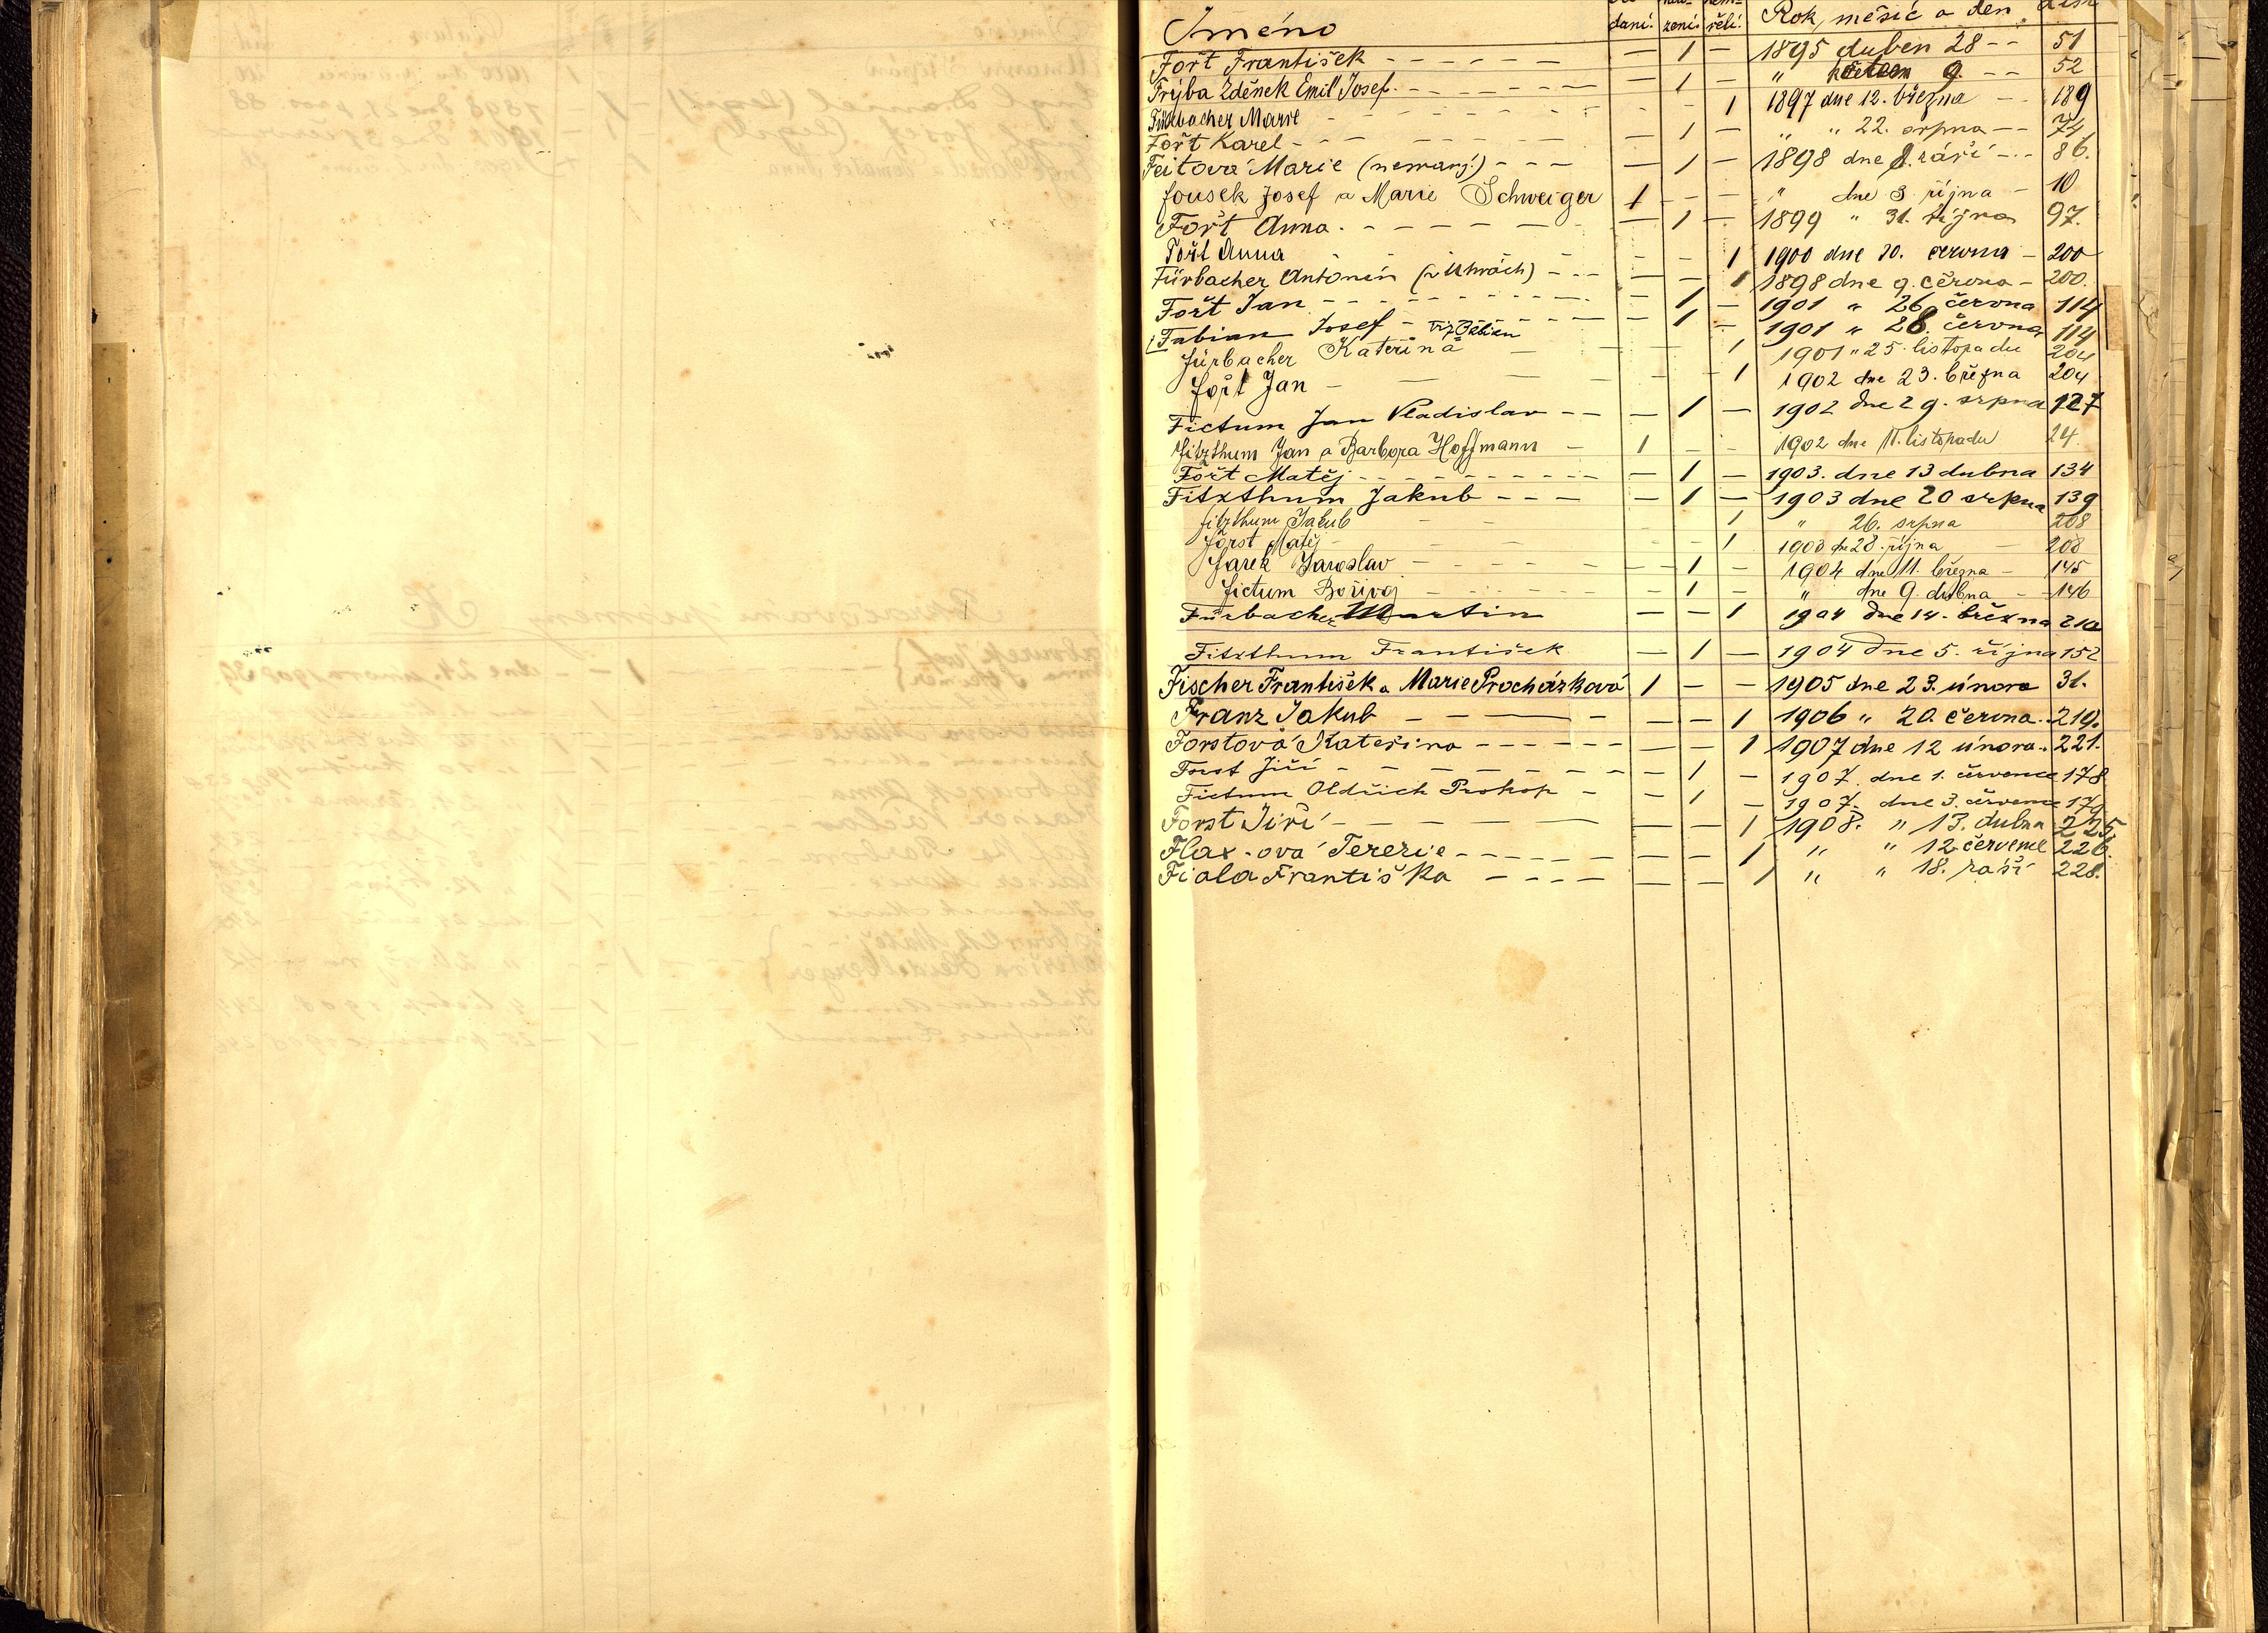 Jméno daní. zení. řeli. Rok, měsíc a den
Fořt František - - - - - - — 1 — 1895 duben 28 - - 51
Frýba Zdeněk Emil Josef. - - - - - — 1 — " květen 9. - - 52
Fürbacher Marie - - - - 1 1897 dne 12. března - - 189
Fořt Karel - - - - — 1 — " " 22. srpna - - 74
Feitová Marie (nemanž.) - - - — 1 — 1898 dne 8. září - - 86.
Fousek Josef a Marie Schweiger 1 - - " dne 3 října - 10
Fořt Anna. - - - - - — 1 — 1899 " 31. října 97.
Fořt Anna - - 1 1900 dne 30. června - 200
Fürbacher Antonín (v Uhrách) - - - — — 1 1898 dne 9. června - 200.
Fořt Jan - - - - - - - — 1 — 1901 " 26 června 114
Fabian Josef - viz Babian — 1 — 1901 " 28. června 114
Fürbacher Kateřina — - - 1 1901 " 25. listopadu 204
Fořt Jan - — — — - - 1 1902 dne 23. března 204
Fictum Jan Vladislav - - — 1 — 1902 dne 29. srpna 127
Fitzthum Jan a Barbora Hoffmann - 1 - - 1902 dne 11. listopadu 24.
Fořt Matěj - - - - - - - - — 1 — 1903. dne 13 dubna 134
Fitzthum Jakub - - - — 1 — 1903 dne 20 srpna 139
Fitzthum Jakub - - - - 1 " 26. srpna 208
Forst Matěj - - - - - 1 1903 dne 28. října — 208
Farek Jaroslav - - - - - - 1 - 1904 dne 11. března - 145
Fictum Bořivoj - - - - - - 1 - " dne 9. dubna - - 146
Fürbacher Martin — — 1 1904 dne 14. března 210
Fitzthum František — 1 — 1904 dne 5. října 152
Fischer František a Marie Procházková 1 - - 1905 dne 23. února 31.
Franz Jakub - - — - — — 1 1906 " 20. června. 219.
Forstová Kateřina - - - - - - — — 1 1907 dne 12 února. 221.
Forst Jiří - - - - - - - - — 1 — 1907. dne 1. července 178
Fictum Oldřich Prokop - — 1 — 1907. dne 3. července 179
Forst Jiří - - - - - — — — 1 1908. " 13. dubna 225.
Flax-ová Terezie - - - - - - — — 1 " " 12. července 226.
Fiala Františka - - - - — — 1 " " 18. září 228.